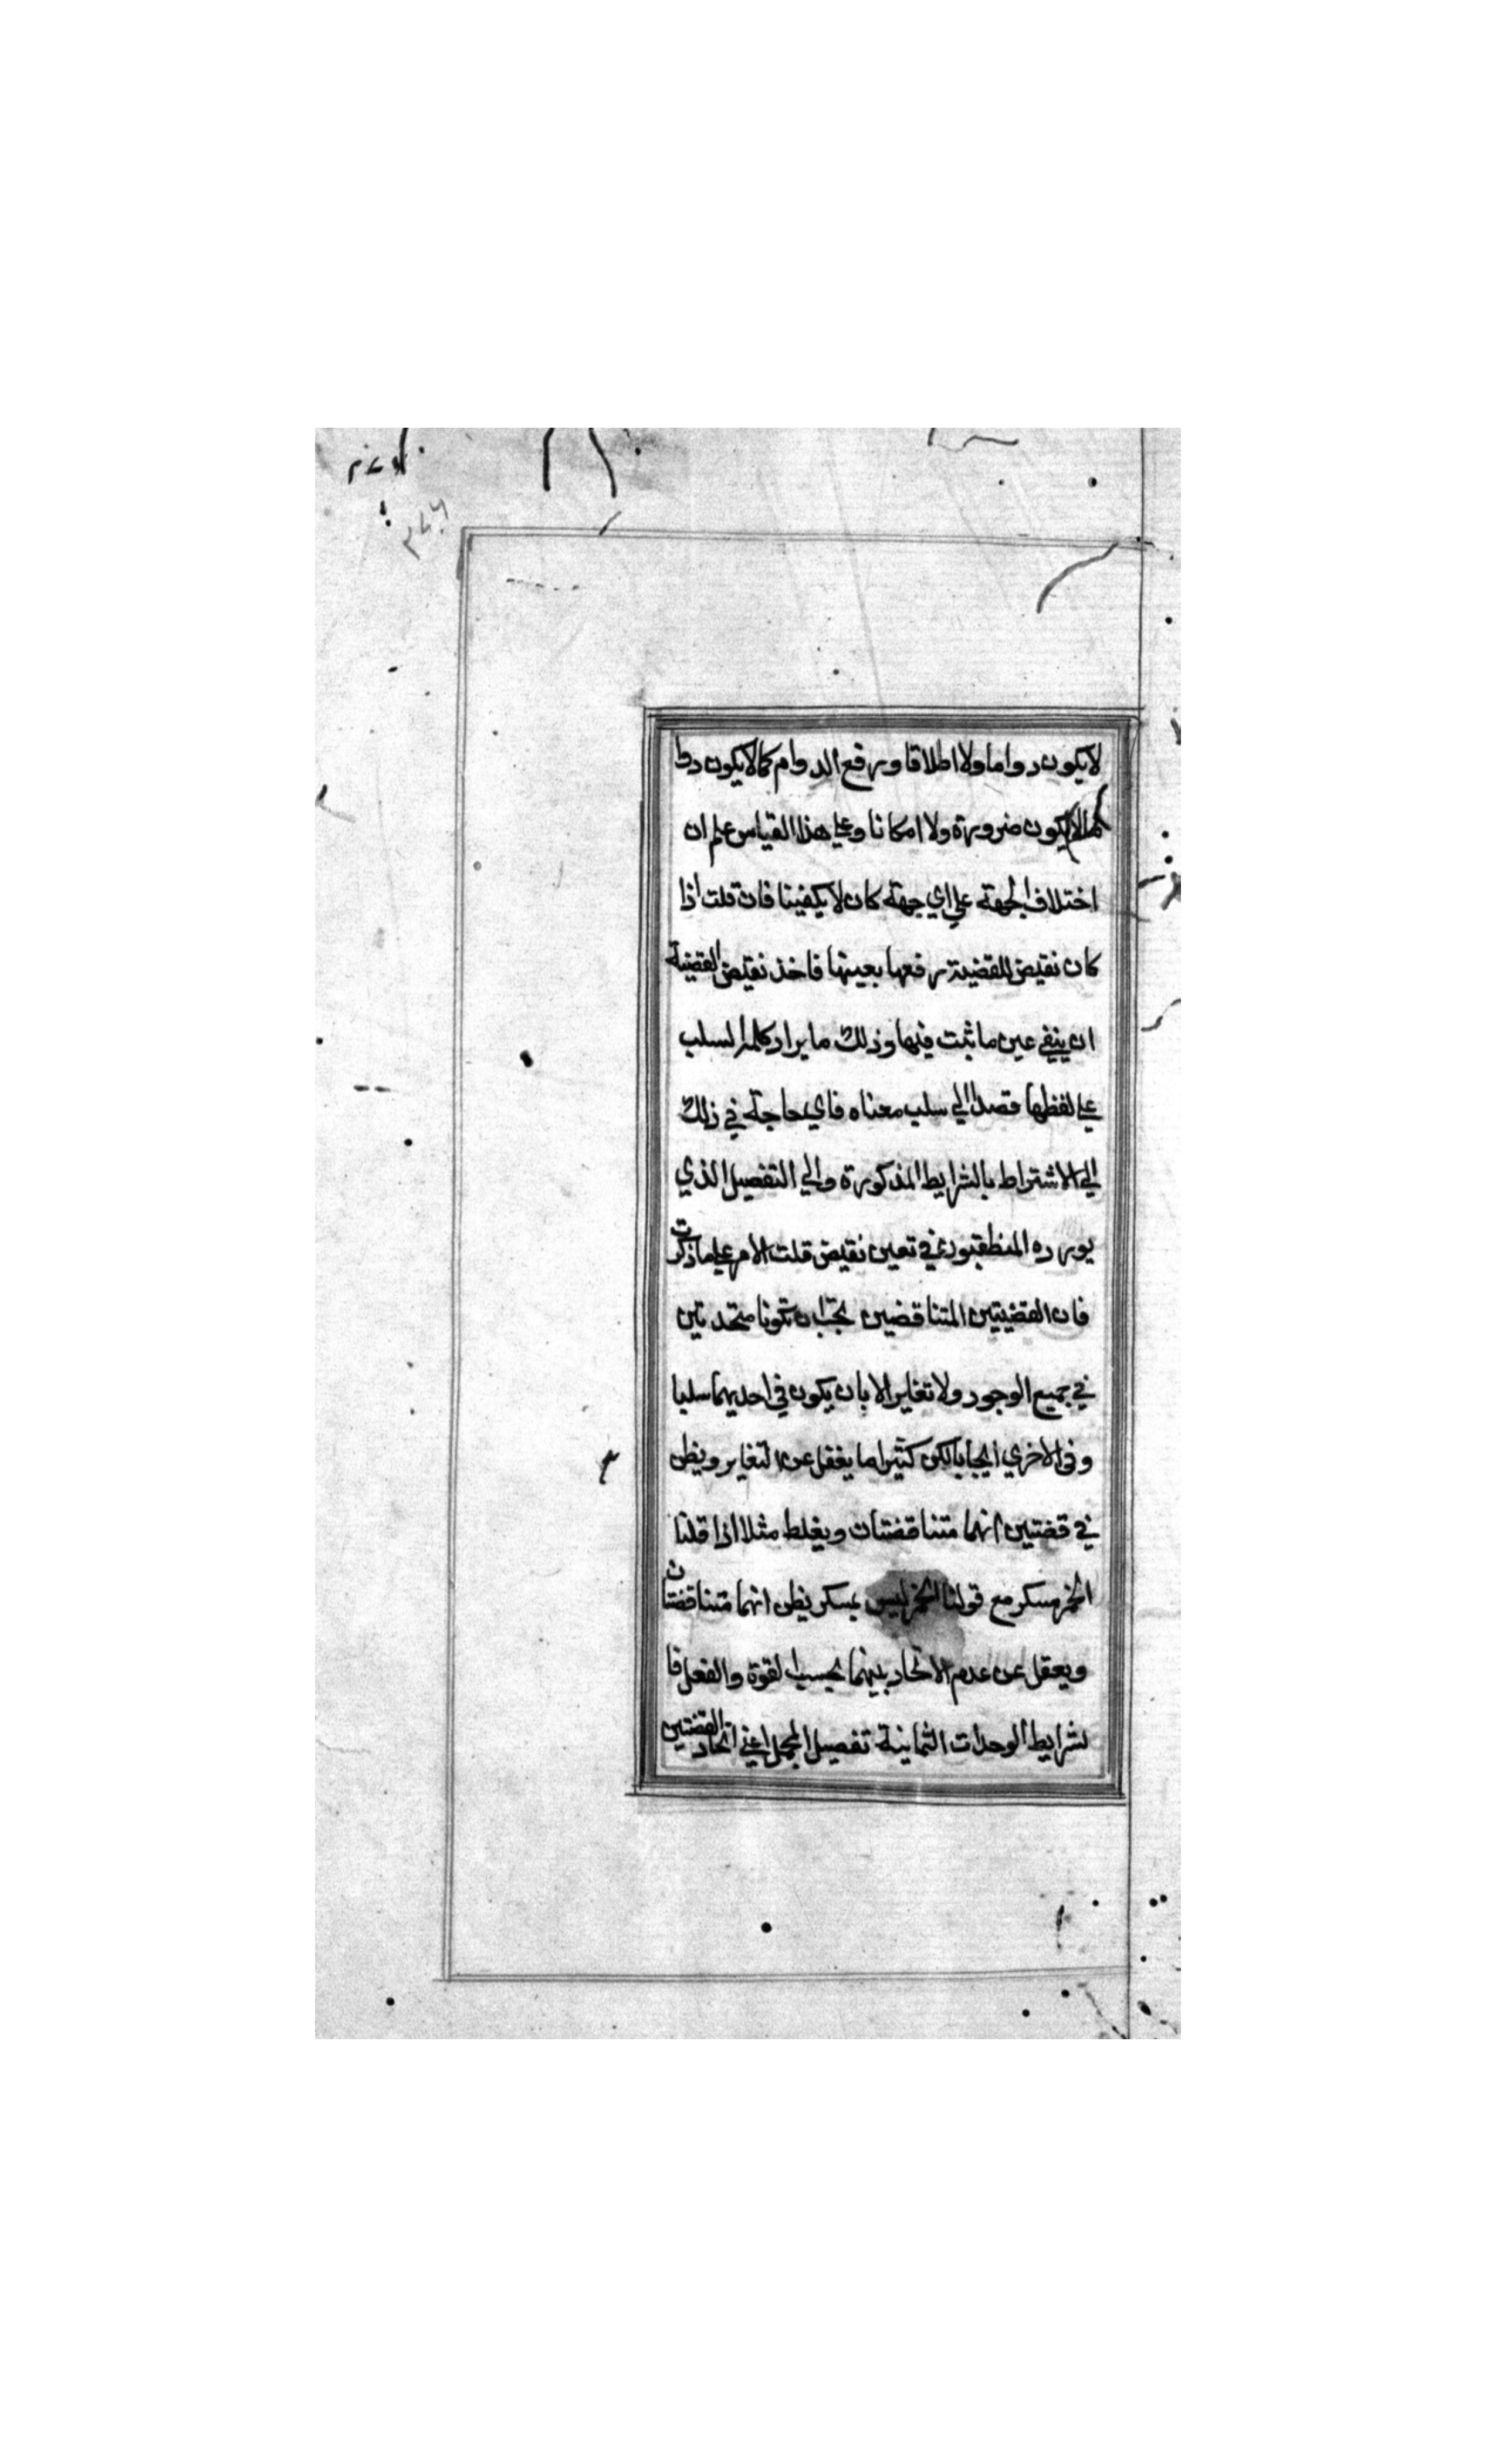 لا يكون دواما ولا اطلاقا ورفع الدوام كما لا يكون دوا
كما لا يكون ضرورة ولا امكانا وعلي هذا القياس علم ان
اختلاف الجهة علي اي جهة كان لا يكفينا فان قلت اذا
كان نقيض للقضية رفعها بعينها فاخذ نقيض القضية
ان ينفي عين ما ثبت فيها وذلك ما يراد كلمة السلب
علي لفظها قصدا الي سلب معناه فاي حاجة في ذلك
الي الاشتراط بالشرايط المذكورة والي التفصيل الذي
يورده المنطقيون في تعين نقيض قلت الامر علي ما ذكرت
فان القضيتين المتناقضين يجب ان تكونا متحدتين
في جميع الوجود ولا تغاير الا بان يكون في احديهما سلبا
وفي الاخري ايجابا لكن كثيرا ما يغفل عن التغاير ويظن
في قضتين انهما متناقضتان ويغلط مثلا اذا قلنا
الخمر مسكر مع قولنا الخمر ليس بمسكر يظن انهما متناقضتان
ويعقل عن عدم الاتحاد بينهما بحسب القوة والفعل فا
لشرايط الوحدات الثمانية تفصيل المجمل اعني اتحاد القضتين